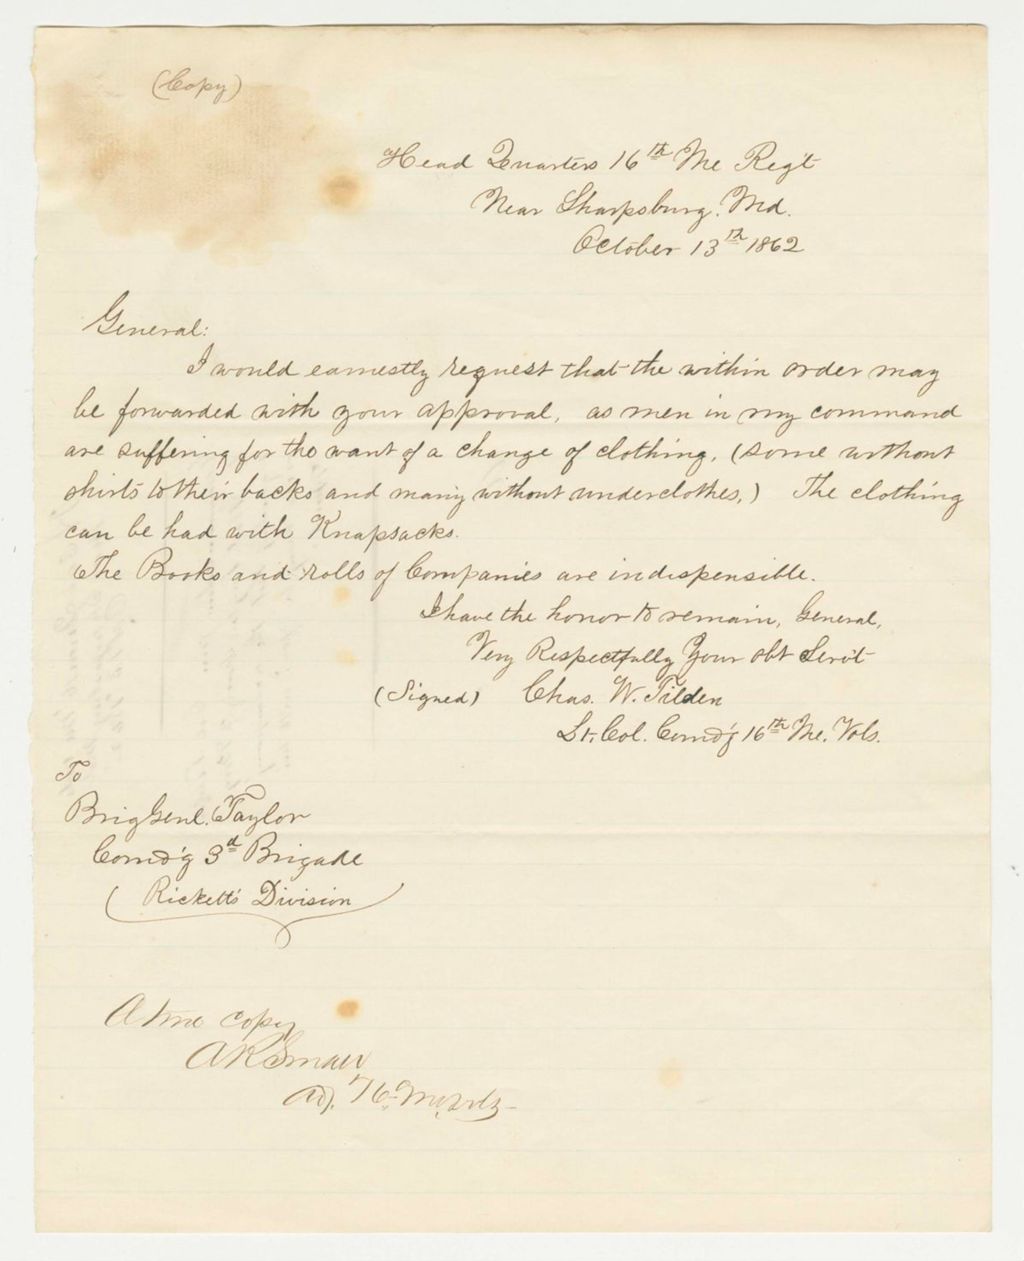 (Copy)
Head Quarters 16th Me Reg't
Near Sharpsburg. Md.
October 13th 1862
General:
I would earnestly request that the within order may
be forwarded with your approval, as men in my command
are suffering for the want of a change of clothing, (some without
shirts to their backs and many without underclothes,) The clothing
can be had with Knapsacks.
The Books and rolls of Companies are indispensible.
I have the honor to remain, General,
Very Respectfully Your obt Serv't
(Signed) Chas. W. Tilden
Lt. Col. Comd'g 16th Me. Vols.
To
Brig Genl. Taylor
Comd'g 3d Brigade
Ricketts Division
A true copy
A R Small
Adj. 16 Me Vols